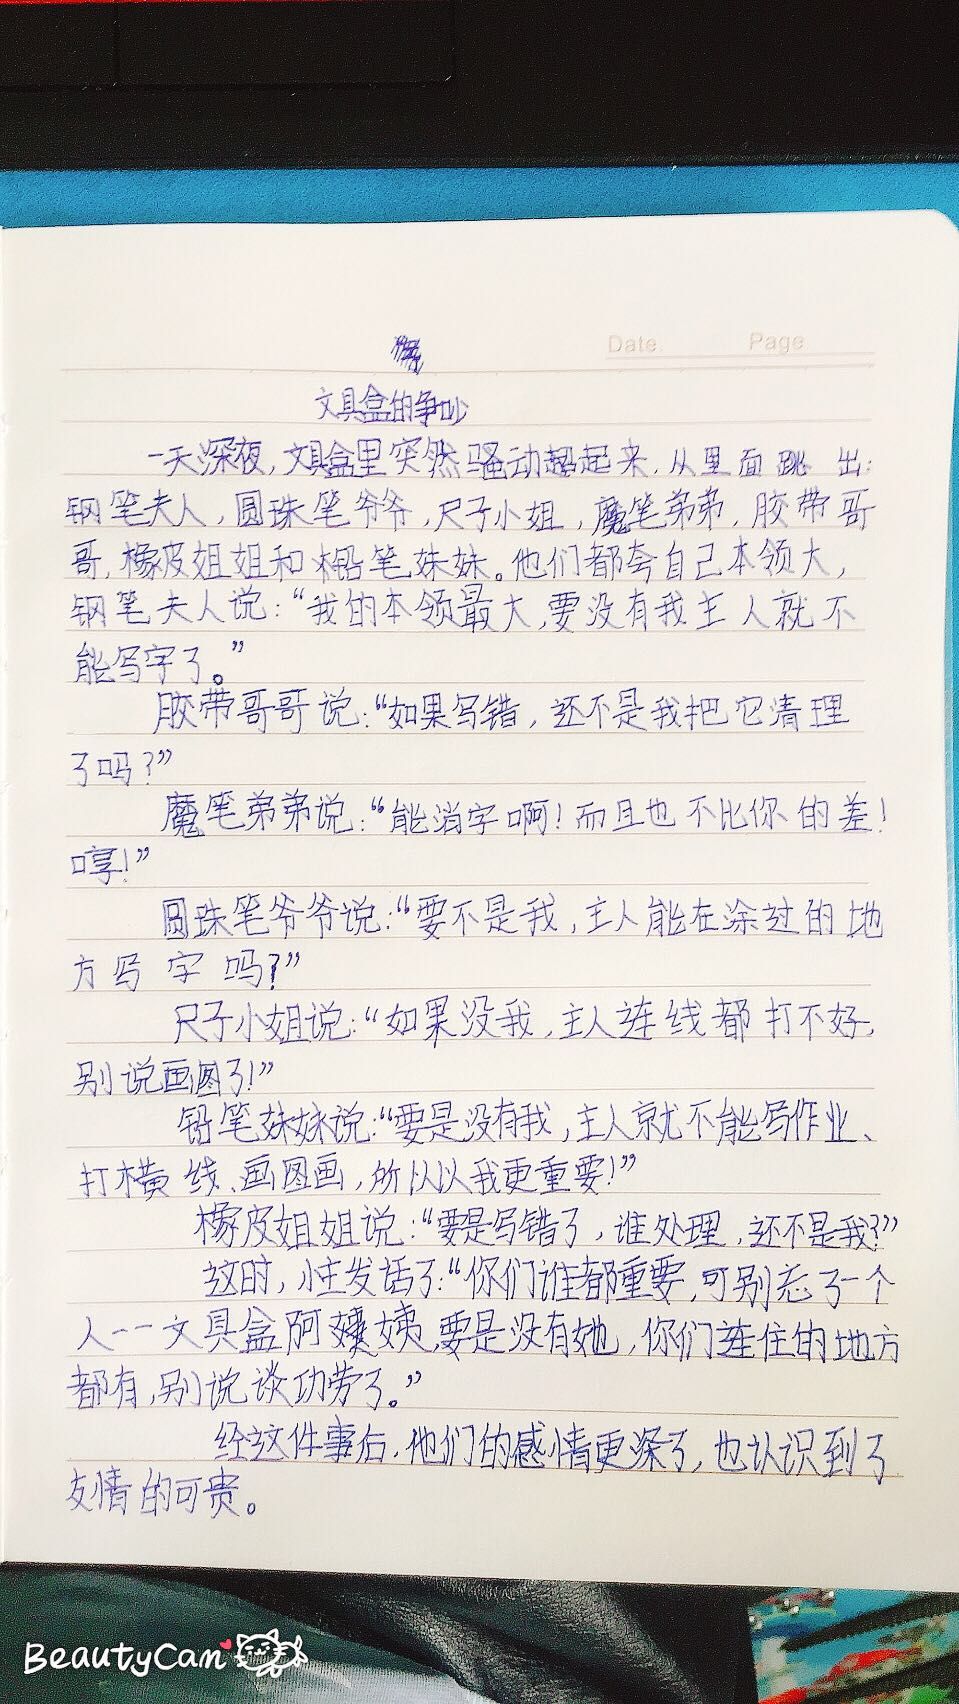 Date.
Page
文具盒的争吵
一天深夜，文具盒里突然骚动起来，从里面跳出：
钢笔夫人，圆珠笔爷爷，尺子小姐，魔笔弟弟，胶带哥
哥，橡皮姐姐和铅笔妹妹。他们都夸自己本领大，
钢笔夫人说：“我的本领最大，要没有我主人就不
能写字了。”
胶带哥哥说：“如果写错，还不是我把它清理
了吗？”
魔笔弟弟说：“能消字啊！而且也不比你的差！
哼！”
圆珠笔爷爷说：“要不是我，主人能在涂过的地
方写字吗？”
尺子小姐说：“如果没我，主人连线都打不好，
别说画图了！”
铅笔妹妹说：“要是没有我，主人就不能写作业、
打横线、画图画，所以以我更重要！”
橡皮姐姐说：“要是写错了，谁处理，还不是我？”
这时，小主发话了：“你们谁都重要，可别忘了一个
人--文具盒阿姨，要是没有她，你们连住的地方
都有，别说谈功劳了。”
经这件事后，他们的感情更深了，也认识到了
友情的可贵。
BeautyCam